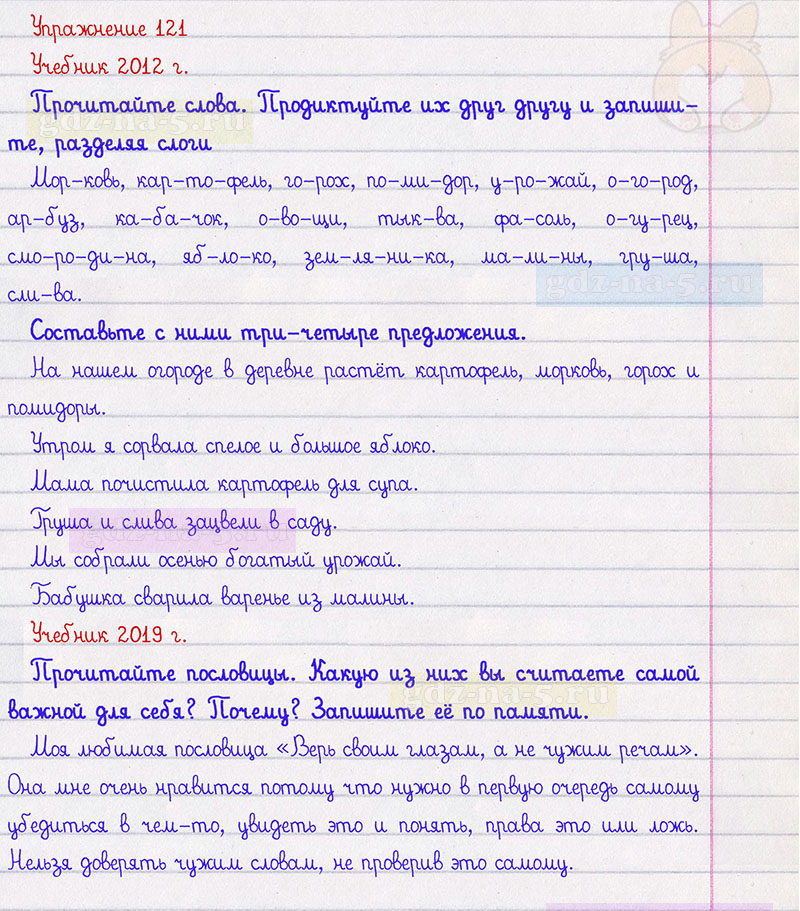 Упражнение 121
Учебник 2012 г.
Прочитайте слова. Продиктуйте их друг другу и запиши-
те, разделяя слоги
Мор-ковь, кар-то-фель, го-рох, по-ми-дор, у-ро-жай, о-го-род,
ар-буз, ка-ба-чок, о-во-щи, тык-ва, фа-соль, о-гу-рец,
смо-ро-ди-на, яб-ло-ко, зем-ля-ни-ка, ма-ли-ны, гру-ша,
сли-ва.
gdz-na-5.ru
Составьте с ними три-четыре предложения.
На нашем огороде в деревне растёт картофель, морковь, горох и
помидоры.
Утром я сорвала спелое и большое яблоко.
Мама почистила картофель для супа.
Груша и слива зацвели в саду.
Мы собрали осенью богатый урожай.
Бабушка сварила варенье из малины.
Учебник 2019 г.
Прочитайте пословицы. Какую из них вы считаете самой
gdz-na-5.ru
важной для себя? Почему? Запишите её по памяти.
Моя любимая пословица «Верь своим глазам, а не чужим речам».
Она мне очень нравится потому что нужно в первую очередь самому
убедиться в чем-то, увидеть это и понять, права это или ложь.
Нельзя доверять чужим словам, не проверив это самому.